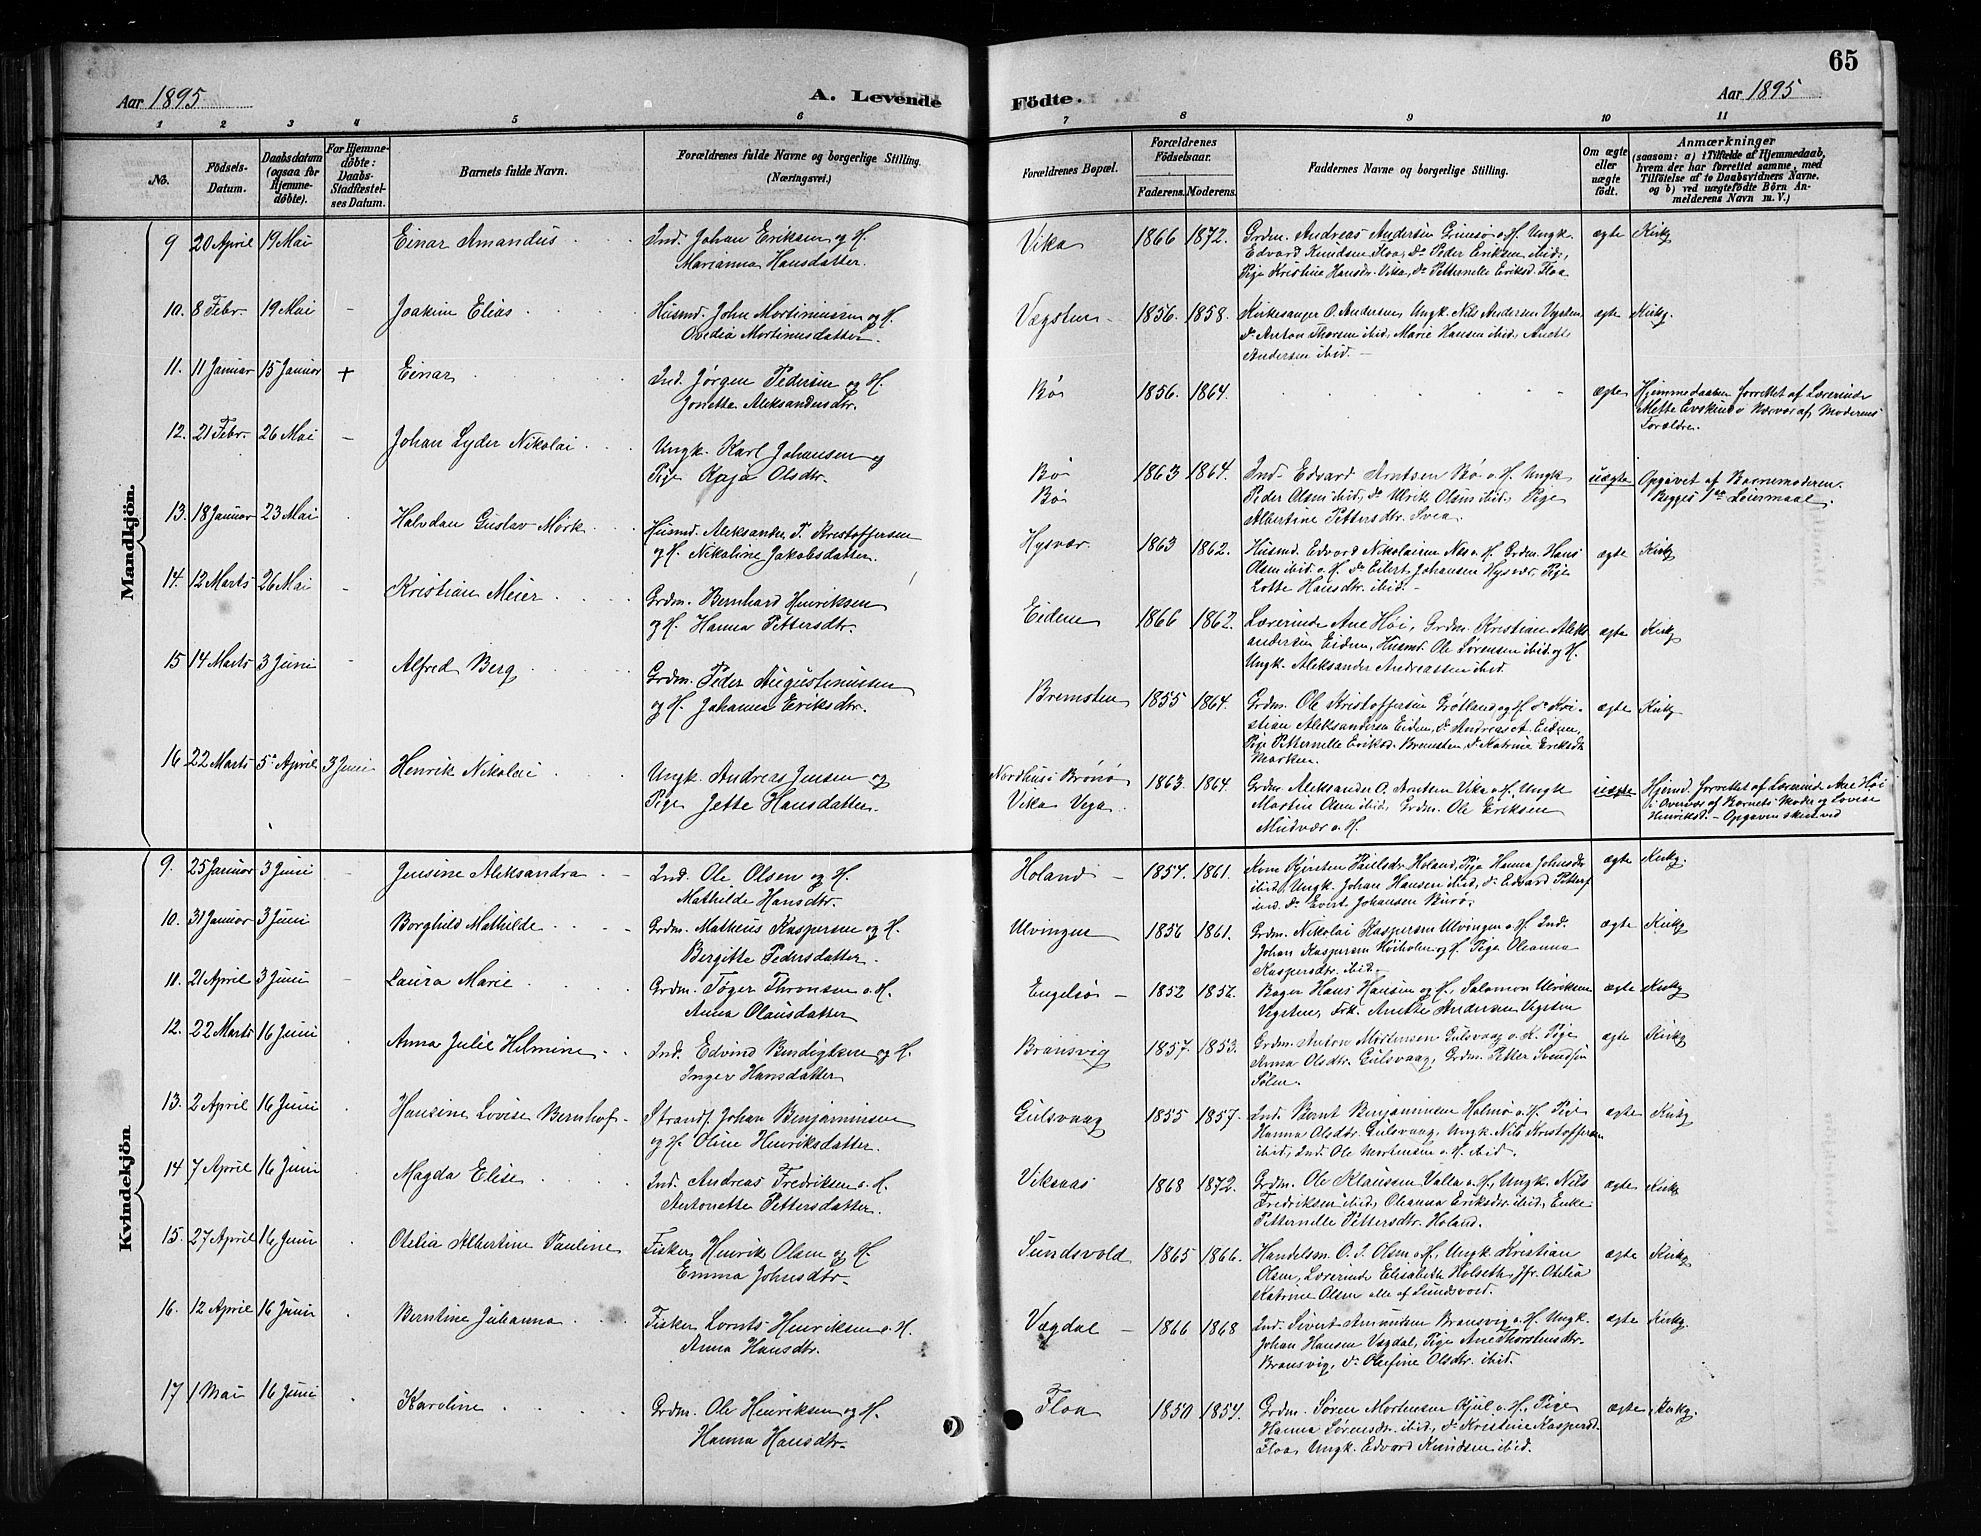 65
Aar 1895
A. Levende
Födte.
Aar 1895
1 2 3 4 5 6 7 8 9 10 11
No.
Födsels-Datum.
Daabsdatum (ogsaa for Hjemme-döbte).
For Hjemme-döbte: Daabs-Stadfæstel-ses Datum.
Barnets fulde Navn.
Forældrenes fulde Navne og borgerlige Stilling. (Næringsvei.)
Forældrenes Bopæl.
Forældrenes Födselsaar.
Faderens. Moderens.
Faddernes Navne og borgerlige Stilling.
Om ægte eller uægte födt.
Anmærkninger
(saasom: a) i Tilfælde af Hjemmedaab,
hvem der har forrettet samme, med
Tilföielse af to Daabsvidners Navne.
og b) ved uægtefödte Börn An-
melderens Navn m. V.)
Mandkjön.
9 20 April 19 Mai Einar Amandus Ind. Johan Eriksen og H.
Marianna Hansdatter.
Vika 1866 1872. Grdm. Andreas Andersen Grimsø o. H. Ungk.
Edvard Knudsen Floa, do Peder Eriksen ibid.,
Pige Kristine Hansdr. Vika, do Petternelle Eriksd. Floa
ægte Kirke
10. 8 Febr. 19 Mai - Joakim Elias Husmd. John Mortinussen og H.
Ovedia Mortinusdatter.
Vægsten 1856. 1858. Kirkesanger O. Andersen, Ungk. Nils Andersen Vegsten,
do Anton Thorsen ibid, Marie Hansen ibid, Anette
Andersen ibid.
ægte Kirkg.
11. 11 Januar 15 Januar + Einar Ind. Jørgen Pedersen og H.
Jonette Aleksandersdtr.
Bø 1856. 1864. ægte Hjemmedaaben forrettet af Lærerinde
Mette Evskind i Nærvær af Moderens
Forældre.
12. 21 Febr. 26 Mai - Johan Lyder Nikolai Ungk. Karl Johansen og
Pige Kaja Olsdtr.
Bø
Bø
1863 1864. Ind. Edvard Arntsen Bø o. H. Ungk
Peder Olsen ibid, do Ulrik Olsen ibid. Pige
Albertine Pettersdtr. Svea
uægte Opgivet af Barnemoderen.
Begges 1ste Leiermaal.
13. 18 Januar 23 Mai Halvdan Gustav Mørk Husmd. Aleksander P. Kristoffersen
og H. Nikoline Jakobsdatter.
Hysvær 1863 1862. Husmd. Edvard Nikolaisen Nes o. H. Grdm. Hans
Olsen ibid o. H. do Eilert Johansen Hysvær, Pige
Lotte Hansdtr. ibid.
ægte Kirkg
14. 12 Marts 26 Mai - Kristian Meier Grdm. Bernhard Henriksen
og H. Hanna Pettersdtr.
Eidem 1866 1862. Lærerinde Ane Høi, Grdm. Kristian Aleks-
andersen Eidem, Husmd. Ole Sørensen ibid og H.
Ungk. Aleksander Andreassen ibid
ægte Kirkg
15 14 Marts 3 Juni - Alfred Berg Grdm. Peder Augustinussen
og H. Johanna Eriksdtr.
Bremsten 1855 1864. Grdm. Ole Kristoffersen Grøtland og H. do Kri-
stian Aleksandersen Eidem, do Andreas A. Eidem,
Pige Petternelle Eriksd. Bremsten, do Katrine Eriksdtr
Marken.
ægte Kirkg
16 22 Marts 5 April 3 Juni Henrik Nikolai Ungk. Andreas Jensen og
Pige Jette Hansdatter.
Nordhus i Brønø
Vika Vega
1863. 1864. Grdm. Aleksander O. Arntsen Vika o. H., Ungk
Martin Olsen ibid, Grdm. Ole Eriksen
Mudvær o. H.
uægte Hjemd. forrettet af Lærerinde Ane Høi
i Overvær af Barnets Moder og Lovise
Henriksd. - Opgaven skeet ved
Kvindekjön
9. 25 Januar 3 Juni Jensine Aleksandra Ind. Ole Olsen og H.
Mathilde Hansdtr.
Holand 1854. 1861. Kone Kjersten Paulsdtr. Holand, Pige Hanna Johnsdtr
ibid, Ungk. Johan Hansen ibid, do Edvard Petters.
ibid. do Evert Johansen Burø.
ægte Kirkg.
10. 31 Januar 3 Juni Borghild Mathilde Grdm. Matheus Kaspersen og H.
Bergitte Pedersdatter.
Ulvingen 1856 1861. Grdm. Nikolai Kaspersen Ulvingen o. H. Ind.
Johan Kaspersen Høiholm og H. Pige Oleanna
Kaspersdtr. ibid.
ægte Kirkg
11. 21 April 3 Juni Laura Marie Grdm. Tøger Thronsen o. H.
Anna Olausdatter
Engelsø 1852 1856. Bager Hans Hansen og H., Salomon Ulriksen
Vegsten, Frk. Anette Andersen Vegsten
ægte Kirkg
12. 22 Marts 16 Juni Anna Julie Helmine Ind. Edvind Bendigtsen og H.
Inger Hansdatter
Bransvig 1857. 1853. Grdm. Anton Mortensen Gulsvaag o. H. Pige
Anna Olsdtr. Gulsvaag, Grdm. Petter Svendsen
Sølen.
ægte Kirkg
13. 2 April 16 Juni Hansine Lovise Bernhof Strands. Johan Benjaminsen
og H. Oline Henriksdatter.
Gulsvaag 1855 1857. Ind. Bernt Benjaminsen Holmø o. H. Pige
Hanna Olsdtr. Gulsvaag, Ungk. Nils Kristoffersen
ibid, Ind. Ole Mortensen o. H. ibid.
ægte Kirkg
14 7 April 16 Juni Magda Elise Ind. Andreas Fredriksen o. H.
Antonette Pettersdatter.
Viksaas 1868 1872. Grdm. Ole Klaussen Valla o. H., Ungk. Nils
Fredriksen ibid, Oleanna Eriksdtr. ibid, Enke
Petternelle Pettersdtr. Holand.
ægte Kirkg
15. 27 April 16 Juni Otelia Albertine Pauline Fisker Henrik Olsen og H
Emma Johnsdtr.
Sundsvold 1865 1866. Handelsm. O. J. Olsen o. H., Ungk. Kristian
Olsen, Lærerinde Elisabeth Holseth, Jfr. Otelia
Katrine Olsen alle af Sundsvold.
ægte Kirkg
16. 12 April 16 Juni Berntine Julianna Fisker Lornts Henriksen o. H.
Anna Hansdtr.
Vægdal 1866 1868 Ind. Sivert Amundsen Bransvig o. H. Ungk.
Johan Hansen Vægdal, Pige Ane Thorstensdtr.
Bransvig, do Olefine Olsdtr. ibid.
ægte Kirkg.
17 1 Mai 16 Juni Karoline Grdm. Ole Henriksen og H.
Hanna Hansdtr.
Floa 1850 1854. Grdm. Søren Mortensen Kjul o. H., Pige
Hanna Sørensdtr. ibid, do Kristine Kaspersd.
Floa, Ungk. Edvard Knudsen ibid.
ægte Kirkg.